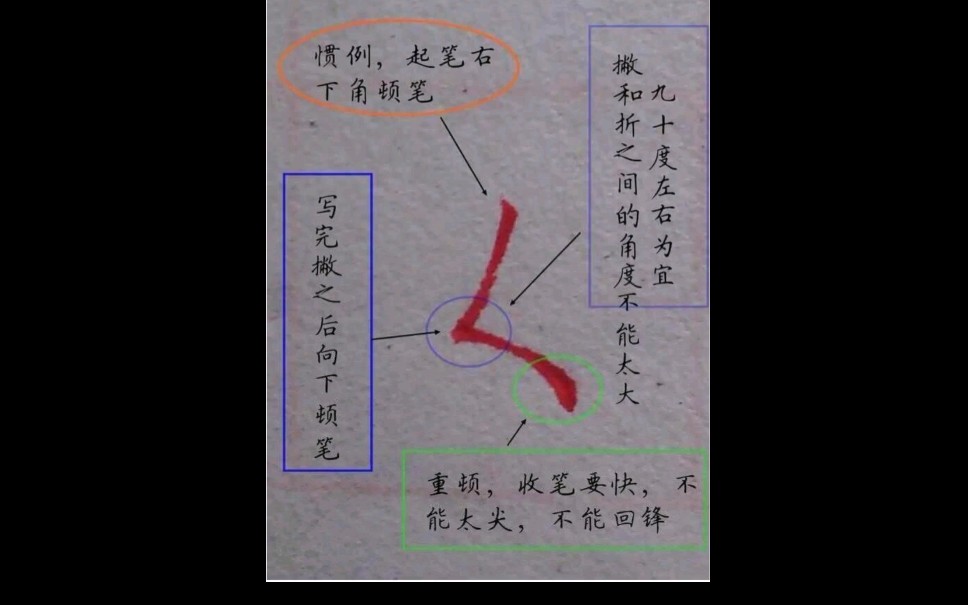 惯例，起笔右
下角顿笔
撇和折之间的角度不能太大
九十度左右为宜
写完撇之后向下顿笔
重顿，收笔要快，不
能太尖，不能回锋